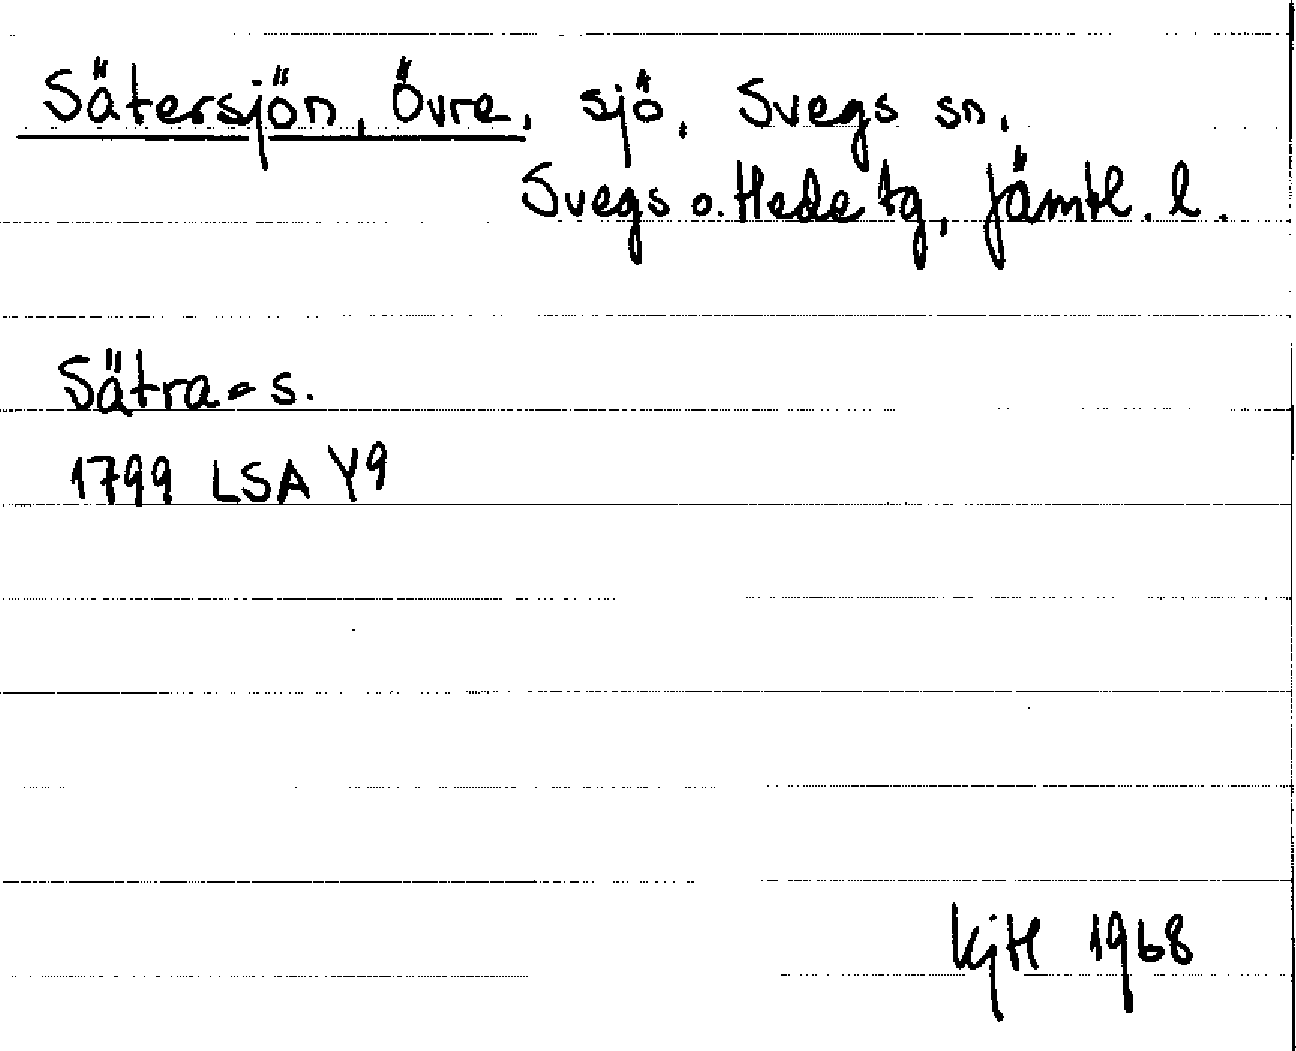 Sätersjön, Övre, sjö, Svegs sn,
Svegs o. Hede tg, Jämtl. l.
Sätra-s.
1799 LSA Y9
KjH 1968